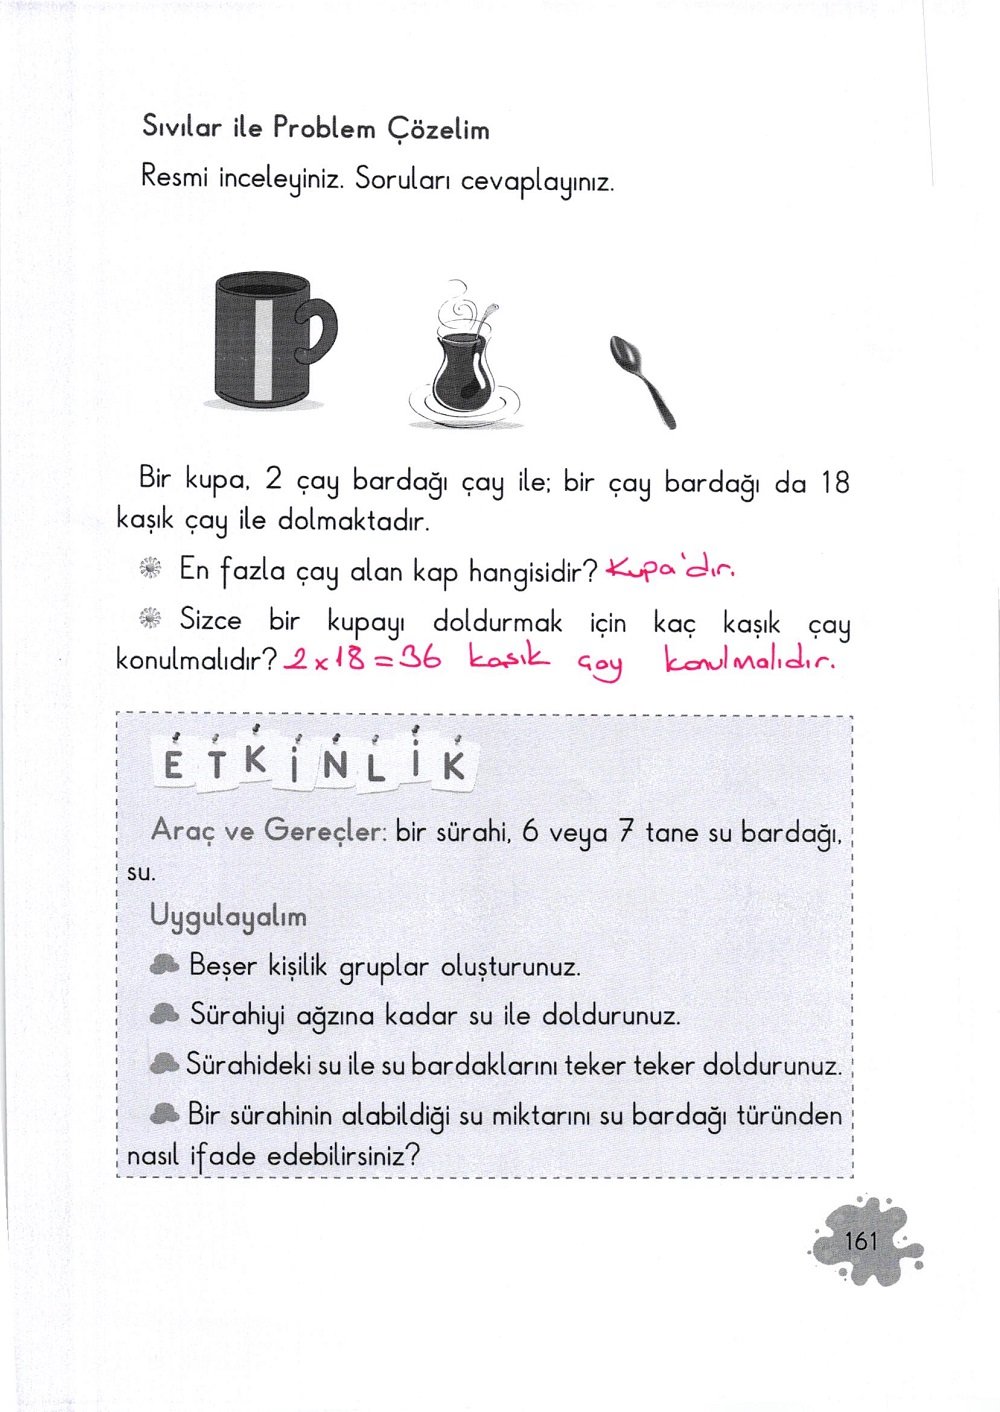 Sıvılar ile Problem Çözelim
Resmi inceleyiniz. Soruları cevaplayınız.
Bir kupa, 2 çay bardağı çay ile; bir çay bardağı da 18
kaşık çay ile dolmaktadır.
En fazla çay alan kap hangisidir? Kupa'dır.
Sizce bir kupayı doldurmak için kaç kaşık çay
konulmalıdır? 2 x 18 = 36 kaşık çay konulmalıdır.
ETKİNLİK
Araç ve Gereçler: bir sürahi, 6 veya 7 tane su bardağı,
su.
Uygulayalım
Beşer kişilik gruplar oluşturunuz.
Sürahiyi ağzına kadar su ile doldurunuz.
Sürahideki su ile su bardaklarını teker teker doldurunuz.
Bir sürahinin alabildiği su miktarını su bardağı türünden
nasıl ifade edebilirsiniz?
161